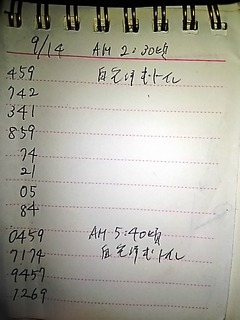 9/14 AM 2:30頃
459 自宅1Fトイレ
742
341
859
74
21
05
84
0459 AM 5:40頃
7174 自宅1Fトイレ
9457
7269